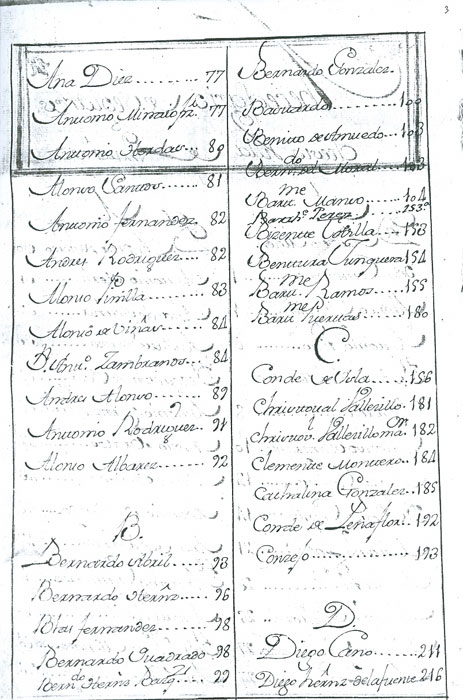 3
Ana Diez.......... 77
Antonio Minaio 77
Antonio 80
Alonso ...... 81
Antonio fernandez. 82
Andres Rodriguez... 82
Alonso Pinilla...... 83
Alonso de Viñas.... 84
D. Antº. Zambranos... 84
Andres Alonso....... 89
Antonio Rodriguez.. 91
Alonso Albarez...... 92
B.
Bernardo Abril...... 93
Bernardo Hernz.... 96
Blas fernandez...... 98
Bernardo Quadrado 98
Bernᵈᵒ Hernz 99
Bernardo Gonzalez.
100
Benito de 103
Bernᵈᵒ del Moral... 103
Barᵐᵉ Manso... 104
Barᵐᵉ Perez 153º
Bizente Cotilla..... 153
Bentura Junquera 154
Barᵐᵉ Ramos..... 155
Barᵐᵉ 180
C.
Conde de 156
Christoual Vallesillo. 181
Christov.ˡ Vallesillo 182
Clemente Montero.. 184
Cathalina Gonzalez.. 185
Conde de Peñaflor.. 192
Conzejo........... 193
D.
Diego Cano...... 211
Diego Hernz de la fuente 216